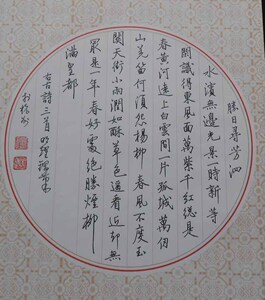 勝日尋芳泗
水濱無邊光景時新等
閒識得東風面萬紫千紅總是
春黃河遠上白雲間一片孤城萬仞
山羌笛何須怨楊柳春風不度玉
関天街小雨潤如酥草色遙看近却無
最是一年春好處絕勝煙柳
滿皇都
古詩三首